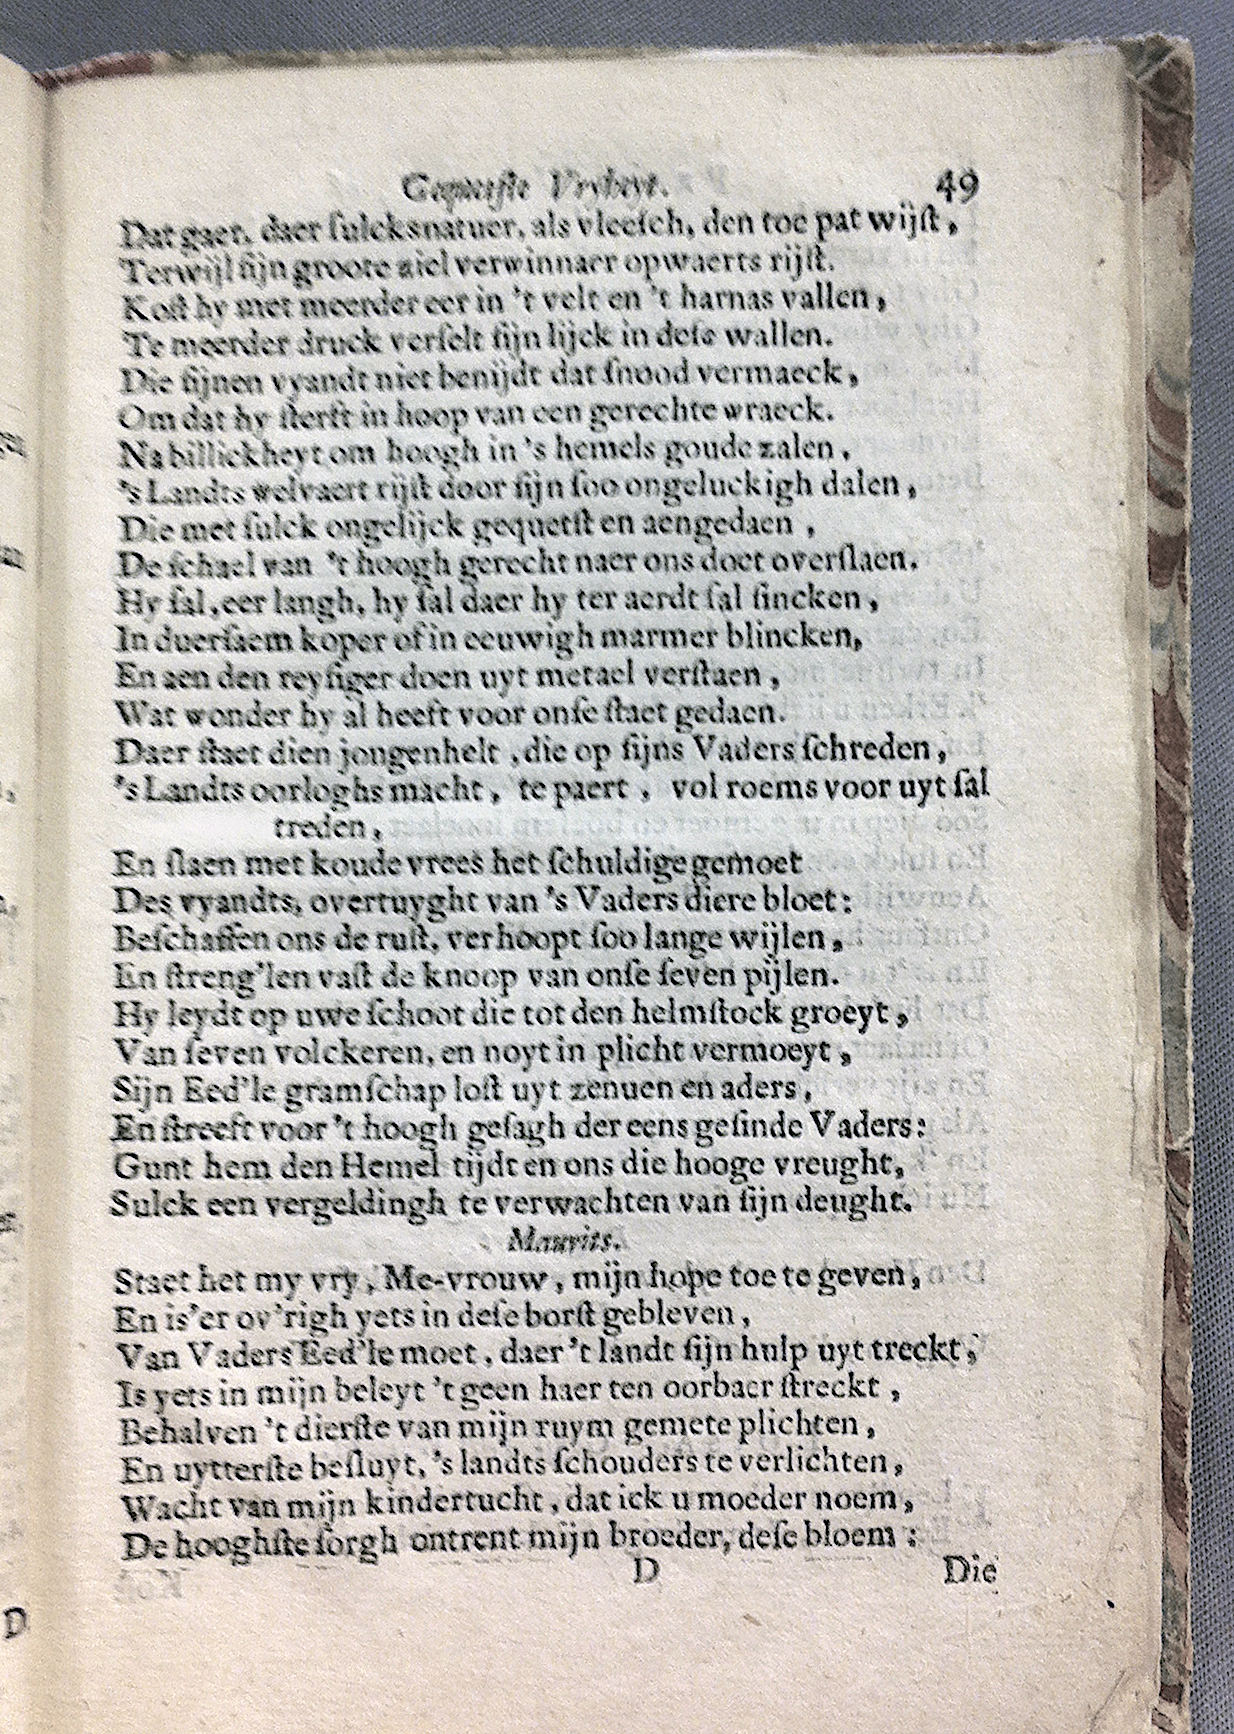 Gequetste Vryheyt. 49
Dat gaet, daer sulcksnatuer, als vleesch, den toe pat wijst,
Terwijl sijn groote ziel verwinnaer opwaerts rijst.
Kost hy met meerder eer in 't velt en 't harnas vallen,
Te meerder druck verselt sijn lijck in dese wallen.
Die sijnen vyandt niet benijdt dat snood vermaeck,
Om dat hy sterft in hoop van een gerechte wraeck.
Na billickheyt om hoogh in 's hemels goude zalen,
's Landts welvaert rijst door sijn soo ongeluckigh dalen,
Die met sulck ongelijck gequetst en aengedaen,
De schael van 't hoogh gerecht naer ons doet overslaen.
Hy sal, eer langh, hy sal daer hy ter aerdt sal sincken,
In duersaem koper of in eeuwigh marmer blincken,
En aen den reysiger doen uyt metael verstaen,
Wat wonder hy al heeft voor onse staet gedaen.
Daer staet dien jongen helt, die op sijns Vaders schreden,
's Landts oorloghs macht, te paert, vol roems voor uyt sal
treden,
En slaen met koude vrees het schuldige gemoet
Des vyandts, overtuyght van 's Vaders diere bloet:
Beschaffen ons de rust, verhoopt soo lange wijlen,
En streng'len vast de knoop van onse seven pijlen.
Hy leydt op uwe schoot die tot den helmstock groeyt,
Van seven volckeren, en noyt in plicht vermoeyt,
Sijn Eed'le gramschap lost uyt zenuen en aders,
En streeft voor 't hoogh gesagh der eens gesinde Vaders:
Gunt hem den Hemel tijdt en ons die hooge vreught,
Sulck een vergeldingh te verwachten van sijn deught.
Maurits.
Staet het my vry, Me-vrouw, mijn hope toe te geven,
En is'er ov'righ yets in dese borst gebleven,
Van Vaders Eed'le moet, daer 't landt sijn hulp uyt treckt,
Is yets in mijn beleyt 't geen haer ten oorbaer streckt,
Behalven 't dierste van mijn ruym gemete plichten,
En uytterste besluyt, 's landts schouders te verlichten,
Wacht van mijn kindertucht, dat ick u moeder noem,
De hooghste sorgh ontrent mijn broeder, dese bloem:
D Die